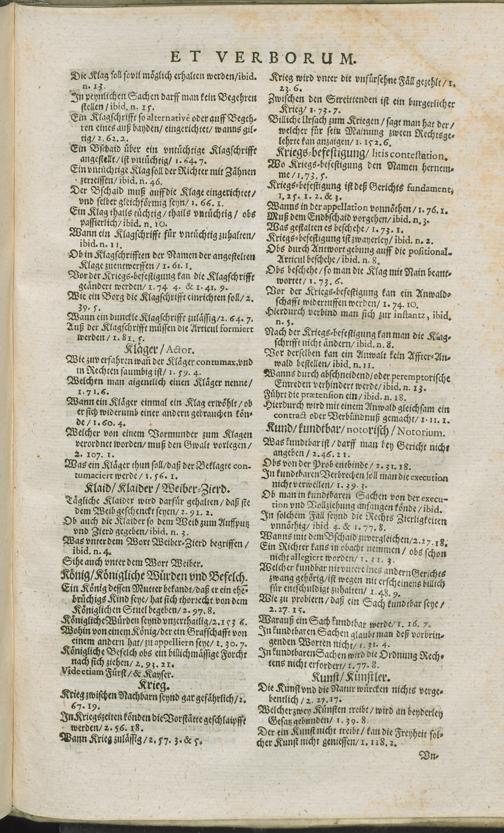 ET VERBORUM.
Die Klag soll sovil möglich erhalten werden/ibid.
n. 13.
In peynlichen Sachen darff man kein Begehren
stellen/ibid. n. 15.
Ein Klagschrifft so alternativè oder auff Begeh-
ren eines auß bayden/eingerichtet/wanns gil-
tig/2.62.2.
Ein Bschaid über ein vntüchtige Klagschrifft
angestellt/ist vntüchtig/1.64.7.
Ein vntüchtige Klag soll der Richter mit Zähnen
zerreissen/ibid. n. 46.
Der Bschaid muß auff die Klage eingerichtet/
vnd selber gleichförmig seyn/1.66.1.
Ein Klag theils tüchtig/theils vntüchtig/obs
passierlich/ibid. n. 10.
Wann ein Klagschrifft für vntüchtig zuhalten/
ibid. n. 11.
Ob in Klagschrifften der Namen der angestelten
Klage zuenetwerffen/1.61.1.
Vor der Kriegs-befestigung kan die Klagschrifft
geändert werden/1.74 4. & 1.41.9.
Wie ein Borg die Klagschrifft einrichten soll/2.
39.5.
Wann ein dunckle Klagschrifft zulässig/2.64.7.
Auß der Klagschrifft müssen die Articul formiert
werden/1.81.5.
Kläger/Actor.
Wie zuverfahren wan der Kläger contumax, vnd
in Rechten saumbig ist/1.59.4.
Welchen man aigentlich einen Kläger nenne/
1.71.6.
Wann ein Kläger einmal ein Klag erwöhlt/ob
er sich widerumb einer andern gebrauchen kön-
de/1.60.4.
Welcher von einem Vormunder zum Klagen
verordnet worden/muß den Gwalt vorlegen/
2.107.1.
Was ein Kläger thun soll/daß der Beklagte con-
tumaciert werde/1.56.1.
Klaid/Klaider/Weiber-Zierd.
Tägliche Klaider wird darfür gehalten/daß sie
dem Weib geschenckt seyen/2.91.2.
Ob auch die Klaider so dem Weib zum Auffputz
vnd Zierd gegeben/ibid. n. 3.
Was vnter dem Wort Weiber-Zierd begriffen/
ibid. n. 4.
Sihe auch vnter dem Wort Weiber.
König/Königliche Würden vnd Befelch.
Ein König dessen Mutter bekande/daß er ein ehe-
brüchigs Kind seye/hat sich vom
Königlichen Stuel begeben/2.97.8.
Königliche Würden seynd vnzerthailig/2.153 6.
Wohin von einem König/der ein Graffschafft von
einem andern hat/zu appelliern seye/1.30.7.
Königliche Befelch obs ein billichmässige Forcht
nach sich ziehen/2.93.21.
Vide etiam Fürst/& Kayser.
Krieg.
Krieg zwischen Nachbarn seynd gar gefährlich/2.
67.19.
In Kriegszeiten könden die Vorstätte geschlaifft
werden/2.56.18.
Wann Krieg zulässig/2.57.3. & 5.
Krieg wird vnter die vnfürsehne Fäll gezehlt/1.
23.6.
Zwischen den Streittenden ist ein burgerlicher
Krieg/1.73.7.
Billiche Ursach zum Kriegen/sagt man hat der/
welcher für sein Mainung zween Rechtsge-
lehrte kan anzaigen/1.152.6.
Kriegs-befestigung/litis contestation.
Wo Kriegs-befestigung den Namen hernem-
me/1.73.5.
Kriegs-befestigung ist deß Gerichts fundament,
1.25.1.2. & 3.
Wanns in der appellation vonnöthen/1.76.1.
Muß dem Endbschaid vorgehen/ibid. n. 3.
Was gestalten es beschehe/1.73.1.
Kriegs-befestigung ist zwayerley/ibid. n. 2.
Obs durch Antwort gebung auff die positional-
Articul beschehe/ibid. n. 8.
Obs beschehe/so man die Klag mit Nain beant-
wortet/1.73.6.
Vor der Kriegs-befestigung kan ein Anwald-
schafft widerruffen werden/1.74.10.
Hierdurch verbind man sich zur instantz, ibid.
n. 5.
Nach der Kriegs-befestigung kan man die Klag-
schrifft nicht ändern/ibid. n. 8.
Vor derselben kan ein Anwalt kein Affter-An-
wald bestellen/ibid. n. 11.
Wanns durch abschneidend/oder peremptorische
Einreden verhindert werde/ibid. n. 13.
Führt die prætension ein/ibid. n. 18.
Hierdurch wird mit einem Anwald gleichsam ein
contract oder Verbündnuß gemacht/1.11.1.
Kund/kundtbar/notorisch/Notorium.
Was kundtbar ist/darff man bey Gericht nicht
angeben/2.46.21.
Obs von der Prob entbinde/2.31.18.
In kundtbaren Verbrechen soll man die execution
nicht verweilen/1.39.3.
Ob man in kundtbaren Sachen von der execu-
tion vnd Vollziehung anfangen könde/ibid.
In solchem Fäll seynd die Rechts Zierligkeiten
vnnöthig/ibid. 4. & 1.77.8.
Wanns mit dem Bschaid zuvergleichen/2.17.18.
Ein Richter kans in obacht nemmen/obs schon
nicht allegiert worden/1.31.3.
Welcher kundbar mit vntere ines andern Gerichts
zwang gehörig/ist wegen nit erscheinens billich
für entschuldigt zuhalten/1.48.9.
Wie zu probiern/daß ein Sach kundtbar seye/
2.27.15.
Warauß ein Sach kundtbar werde/1.16.7.
In kundtbaren Sachen glaubt man deß vorbrin-
genden Worten nicht/1.31.4.
In kundtbaren Sachen wird die Ordnung Rech-
tens nicht erfordert/1.77.8.
Kunst/Künstler.
Die Kunst vnd die Natur würcken nichts verge-
bentlich/2.27.17.
Welcher zwey Künsten treibt/wird an beyderley
Gesatz gebunden/1.39.8.
Der ein Kunst nicht treibt/kan die Freyheit sol-
cher Kunst nicht geniessen/1.118.2.
Vn-